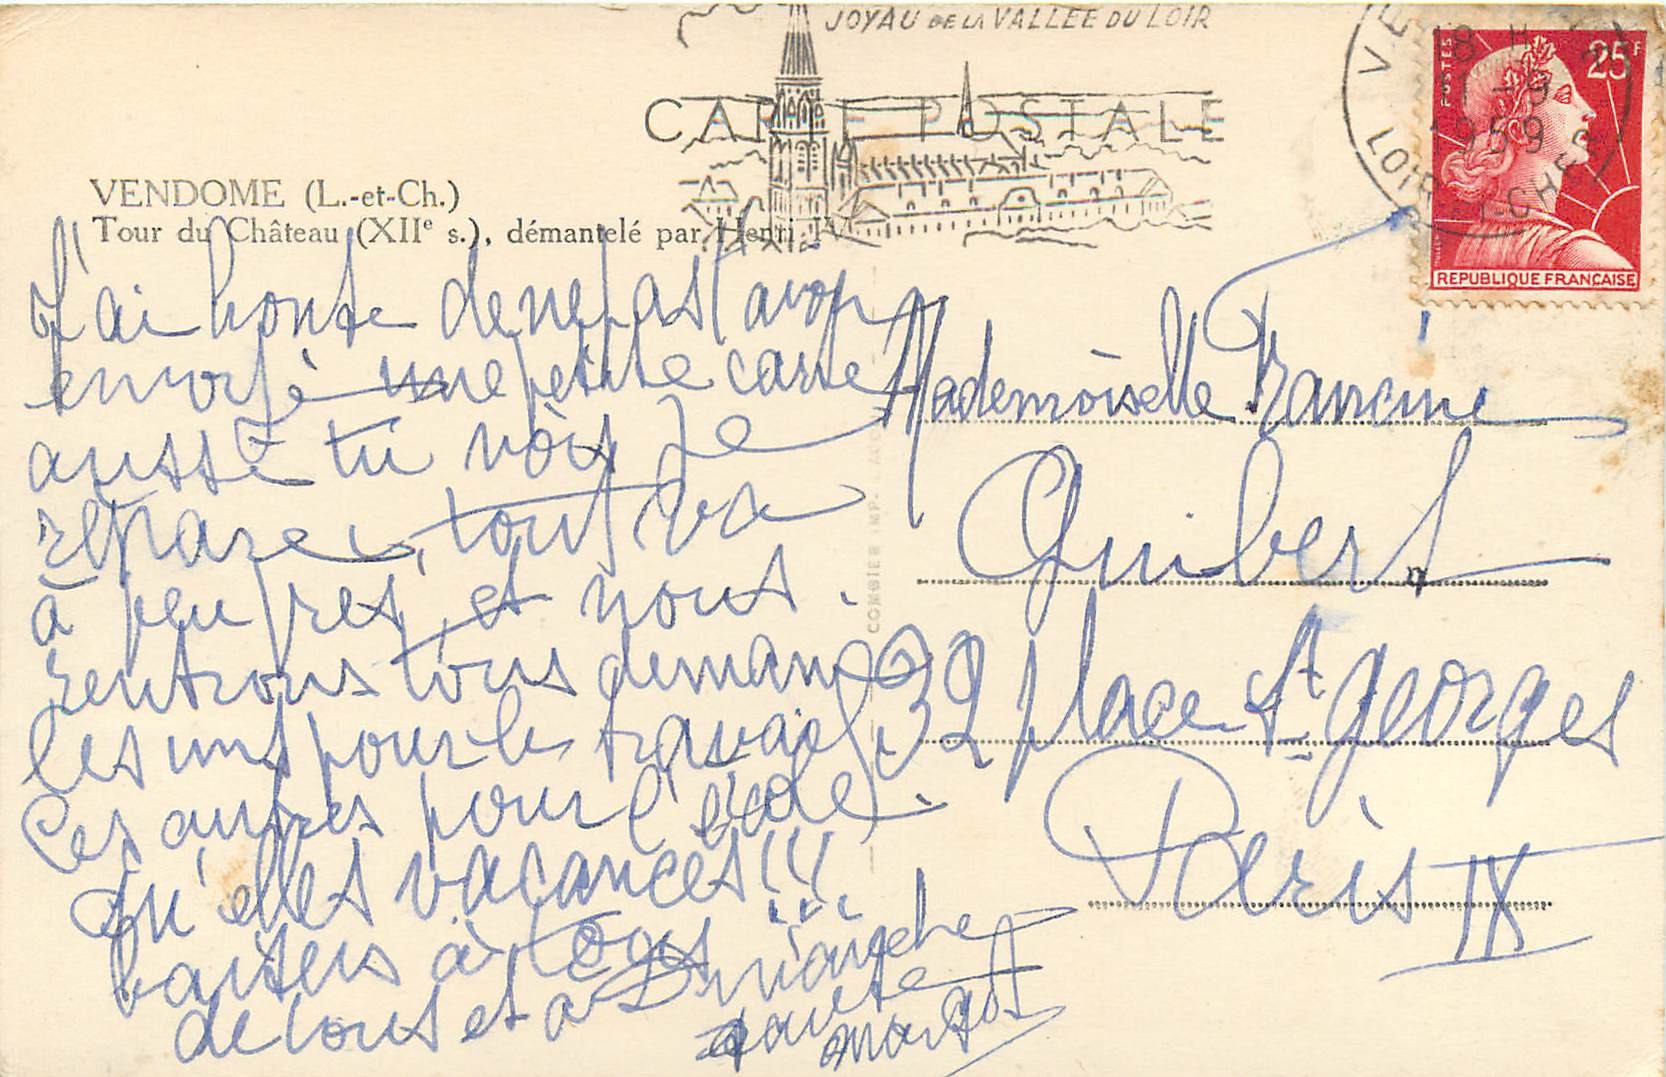 JOYAU DE LA VALLÉE DU LOIR
CARTE POSTALE
VENDOME (L.-et-Ch.)
Tour du Château (XIIe s.), démantelé par Henri IV
18 H
1 - 9
1959
LOIR-ET-CHER
POSTES
25F
REPUBLIQUE FRANÇAISE
J'ai honte de ne pas t'avoir
envoyé une petite carte
aussi tu vois je
répare, tout va
à peu près, et nous
rentrons tous demain
les uns pour le travail
les autres pour l'école.
Qu'elles vacances!!!
baisers à tous
de tous et à Dimanche
tante
Margot
Mademoiselle Francine
Guibert
32 place St Georges
Paris IX
COMBIER IMP.